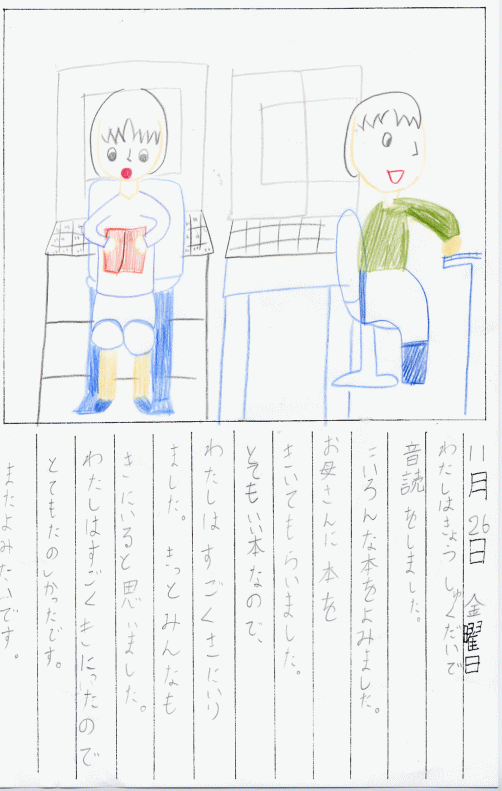 11月26日 金曜日
わたしはきょう しゅくだいで
音読をしました。
いろんな本をよみました。
お母さんに本を
きいてもらいました。
とてもいい本なので、
わたしは すごくきにいり
ました。きっとみんなも
きにいると思いました。
わたしはすごくきにいったので
とてもたのしかったです。
またよみたいです。